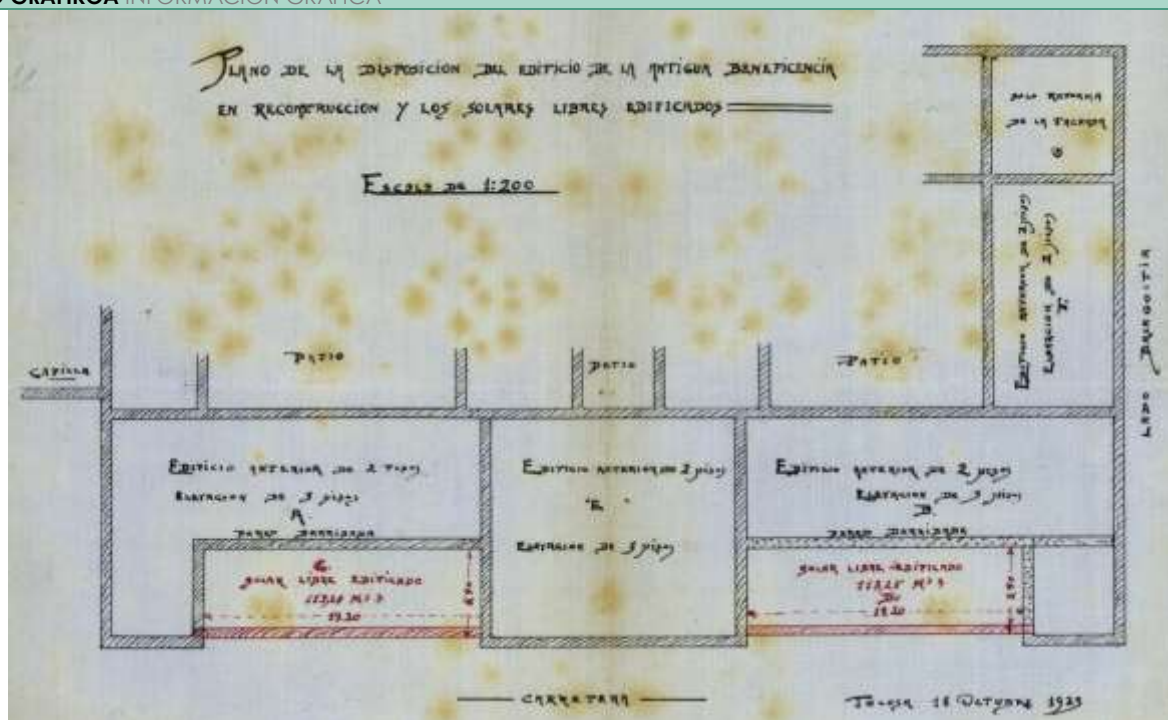 GRAFIKOA INFORMACIÓN GRÁFICA
PLANO DE LA DISPOSICION DEL EDIFICIO DE LA ANTIGUA BENEFICENCIA
EN RECONSTRUCCION Y LOS SOLARES LIBRES EDIFICADOS
ESCALA DE 1:200
SOLO REFORMA
DE LA FACHADA
G
EDIFICIO ANTERIOR DE 2 PISOS
ELEVACION DE 2 PISOS
F.
CAPILLA
PATIO
PATIO
PATIO
EDIFICIO ANTERIOR DE 2 PISOS
ELEVACION DE 3 PISOS
A.
PARED DERRIBADA
EDIFICIO ANTERIOR DE 2 PISOS
"E"
ELEVACION DE 3 PISOS
EDIFICIO ANTERIOR DE 2 PISOS
ELEVACION DE 3 PISOS
B.
PARED DERRIBADA
C
SOLAR LIBRE EDIFICADO
19.20
SOLAR LIBRE EDIFICADO
19.20
5.90
LADO
CARRETERA
TOLOSA 18 OCTUBRE 1923